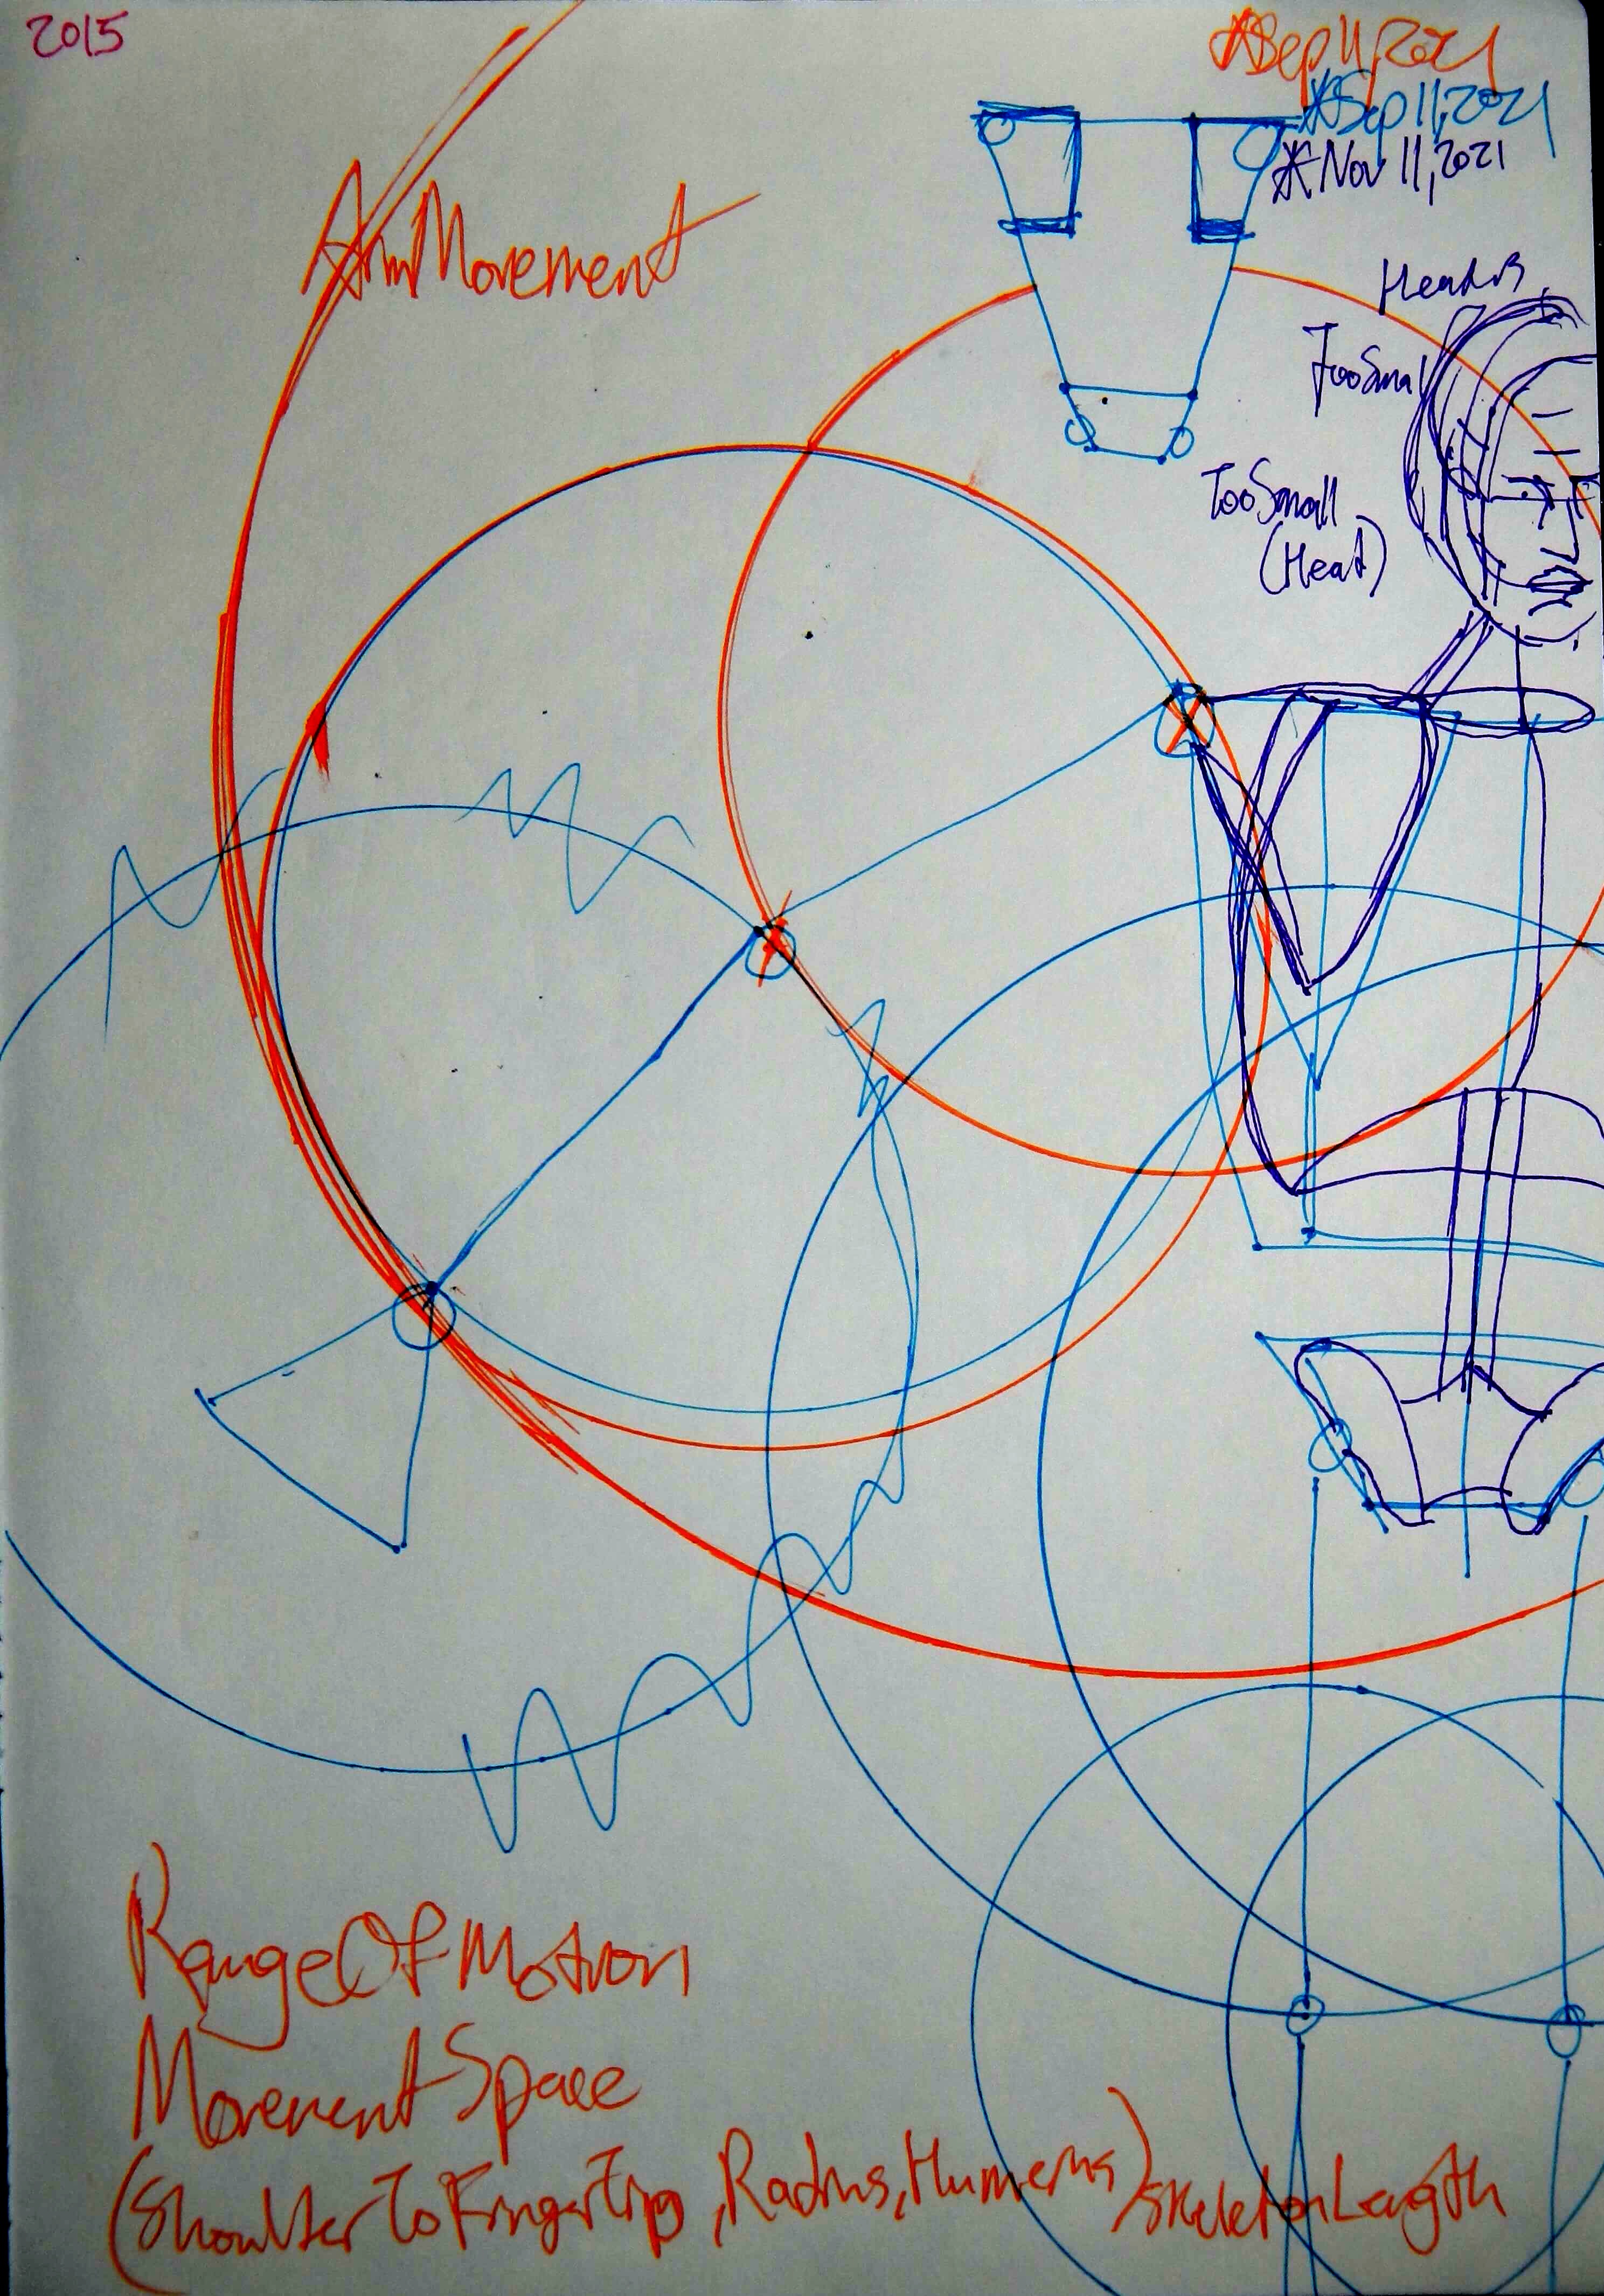 2015
*Sep 11, 2021
*Sep 11, 2021
*Nov 11, 2021
ArmMovement
HeadIs
TooSmall
TooSmall
(Head)
RangeOfMotion
MovementSpace
(ShoulderToFingerTip, Radius, Humerus) SkeletonLength